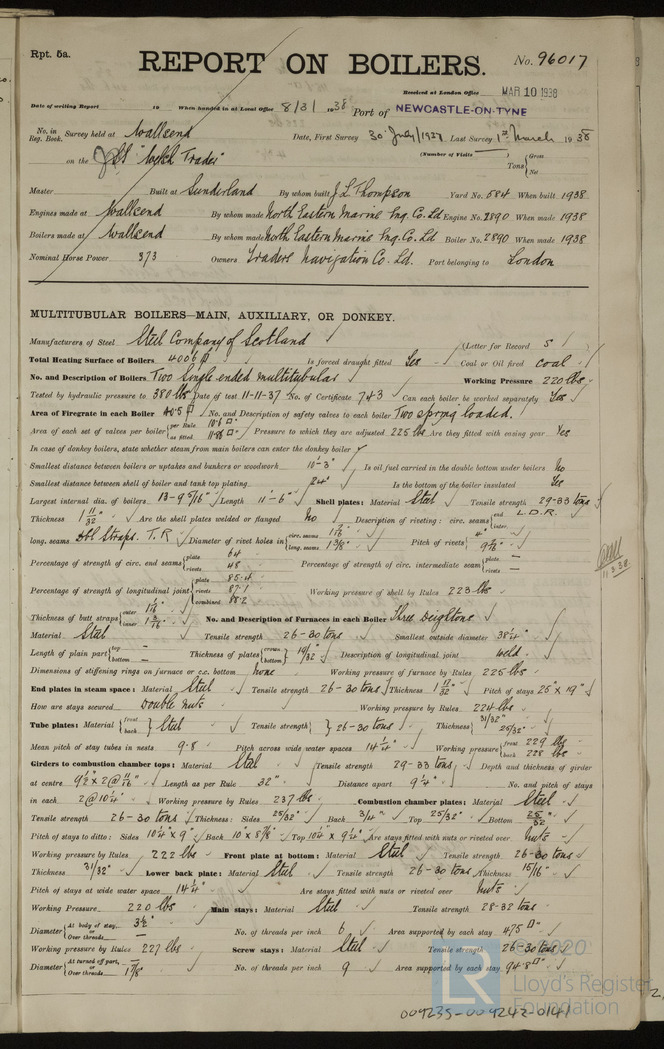 Rpt. 5a.
REPORT ON BOILERS.
No. 96017
Received at London Office MAR 10 1938
Date of writing Report 19 When handed in at Local Office 8/3/1938 Port of NEWCASTLE-ON-TYNE
No. in Reg. Book. Survey held at Wallsend Date, First Survey 30 July/1937 Last Survey 1st March 1938
on the "Welsh Trader" (Number of Visits ) Tons { Gross Net
Master Built at Sunderland By whom built J L Thompson Yard No. 584 When built 1938
Engines made at Wallsend By whom made North Eastern Marine Eng. Co. Ld Engine No. 2890 When made 1938
Boilers made at Wallsend By whom made North Eastern Marine Eng. Co. Ld Boiler No. 2890 When made 1938
Nominal Horse Power 373 Owners Traders Navigation Co. Ld. Port belonging to London
MULTITUBULAR BOILERS—MAIN, AUXILIARY, OR DONKEY.
Manufacturers of Steel Steel Company of Scotland (Letter for Record S )
Total Heating Surface of Boilers 4006 Is forced draught fitted Yes Coal or Oil fired coal
No. and Description of Boilers Two Single ended multitubular Working Pressure 220 lbs
Tested by hydraulic pressure to 380 lbs Date of test 11-11-37 No. of Certificate 743 Can each boiler be worked separately Yes
Area of Firegrate in each Boiler 40.5 No. and Description of safety valves to each boiler Two spring loaded.
Area of each set of valves per boiler { per Rule 10.6 as fitted 11.88 Pressure to which they are adjusted 225 lbs Are they fitted with easing gear Yes
In case of donkey boilers, state whether steam from main boilers can enter the donkey boiler
Smallest distance between boilers or uptakes and bunkers or woodwork 10'-3" Is oil fuel carried in the double bottom under boilers No
Smallest distance between shell of boiler and tank top plating 24" Is the bottom of the boiler insulated Yes
Largest internal dia. of boilers 13-9 5/16" Length 11'-6" Shell plates: Material Steel Tensile strength 29-33 tons
Thickness 1 11/32" Are the shell plates welded or flanged No Description of riveting: circ. seams { end L.D.R. inter.
long. seams Dbl Straps. T.R Diameter of rivet holes in { circ. seams 1 7/16" long. seams 1 3/8" Pitch of rivets { 4" 9 7/16"
Percentage of strength of circ. end seams { plate 64 rivets 48 Percentage of strength of circ. intermediate seam { plate — rivets —
Percentage of strength of longitudinal joint { plate 85.4 rivets 87.1 combined 88.2 Working pressure of shell by Rules 223 lbs
Thickness of butt straps { outer 1 1/16" inner 1 3/16" No. and Description of Furnaces in each Boiler Three Deightons
Material Steel Tensile strength 26-30 tons Smallest outside diameter 38 1/4"
Length of plain part { top — bottom — Thickness of plates { crown bottom 19/32" Description of longitudinal joint weld.
Dimensions of stiffening rings on furnace or c.c. bottom None Working pressure of furnace by Rules 225 lbs
End plates in steam space: Material Steel Tensile strength 26-30 tons Thickness 1 11/32" Pitch of stays 25" x 19"
How are stays secured Double nuts Working pressure by Rules 224 lbs
Tube plates: Material { front back Steel Tensile strength 26-30 tons Thickness { 31/32" 25/32"
Mean pitch of stay tubes in nests 9.8 Pitch across wide water spaces 14 1/4" Working pressure { front 229 lbs back 228 lbs
Girders to combustion chamber tops: Material Steel Tensile strength 29-33 tons Depth and thickness of girder
at centre 9 1/2" x 2 @ 11/16" Length as per Rule 32" Distance apart 9 1/4" No. and pitch of stays
in each 2 @ 10 1/4" Working pressure by Rules 237 lbs Combustion chamber plates: Material Steel
Tensile strength 26-30 tons Thickness: Sides 25/32" Back 3/4" Top 25/32" Bottom 25/32"
Pitch of stays to ditto: Sides 10 1/4" x 9" Back 10" x 8 7/8" Top 10 1/4" x 9 1/4" Are stays fitted with nuts or riveted over Nuts
Working pressure by Rules 222 lbs Front plate at bottom: Material Steel Tensile strength 26-30 tons
Thickness 31/32" Lower back plate: Material Steel Tensile strength 26-30 tons Thickness 15/16"
Pitch of stays at wide water space 14 1/4" Are stays fitted with nuts or riveted over Nuts
Working Pressure 220 lbs Main stays: Material Steel Tensile strength 28-32 tons
Diameter { At body of stay, 3 1/2" or Over threads — No. of threads per inch 6 Area supported by each stay 475
Working pressure by Rules 227 lbs Screw stays: Material Steel Tensile strength 26-30 tons
Diameter { At turned off part, — or Over threads 1 7/8" No. of threads per inch 9 Area supported by each stay 94.8
11.3.38
©2020
LR
Lloyd's Register
Foundation
009235-009242-0141